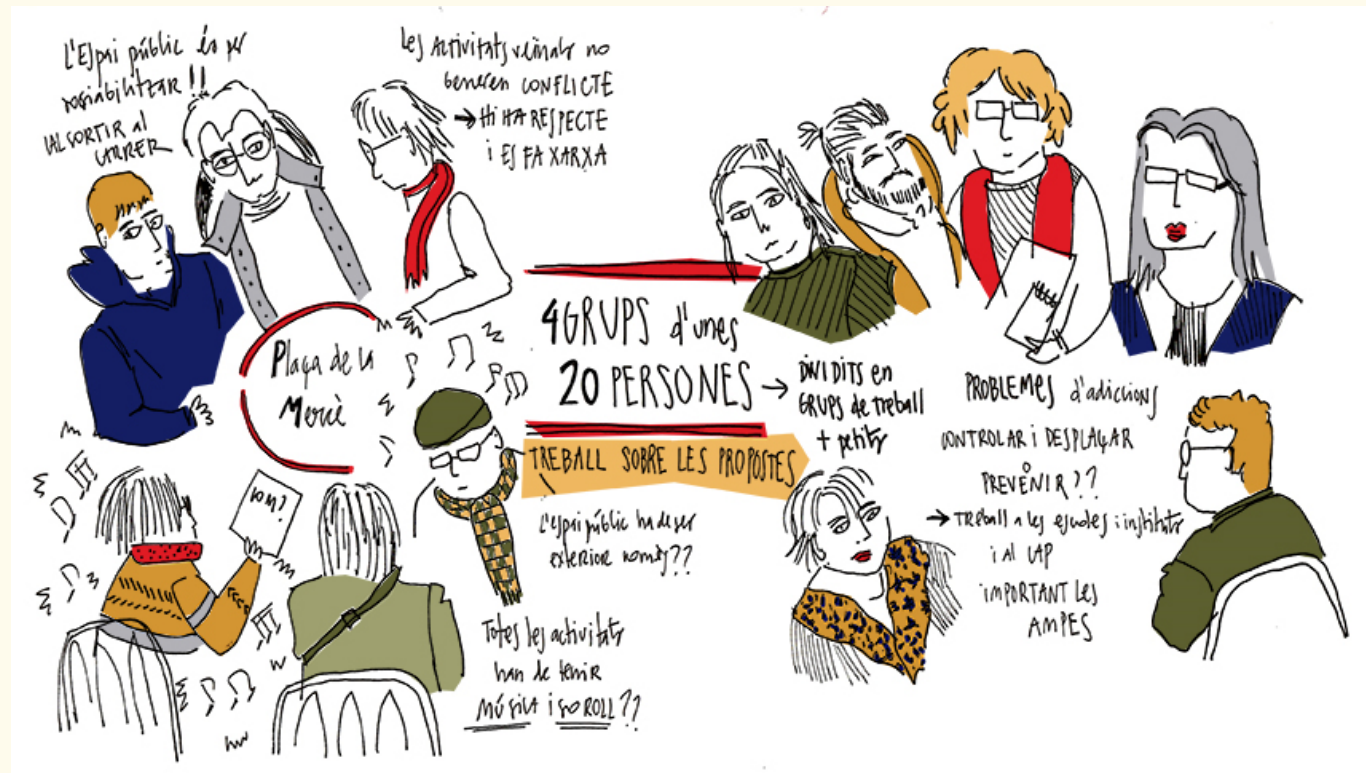 L'Espai públic és per
sociabilitzar !!
CAL SORTIR al
CARRER
Les Activitats veïnals no
generen CONFLICTE
→ Hi HA RESPECTE
i ES FA XARXA
Plaça de la
Mercè
4 GRUPS d'unes
20 PERSONES →
DiViDITS en
GRUPS de treball
+ petits
TREBALL SOBRE LES PROPOSTES
L'espai públic ha de ser
exterior només??
Totes les activitats
han de tenir
MÚSiCA i SOROLL??
PROBLEMES d'adiccions
CONTROLAR i DESPLAÇAR
o
PREVENIR??
→ TReball a les escoles i instituts
i Al CAP
iMPORTANT Les
AMPES